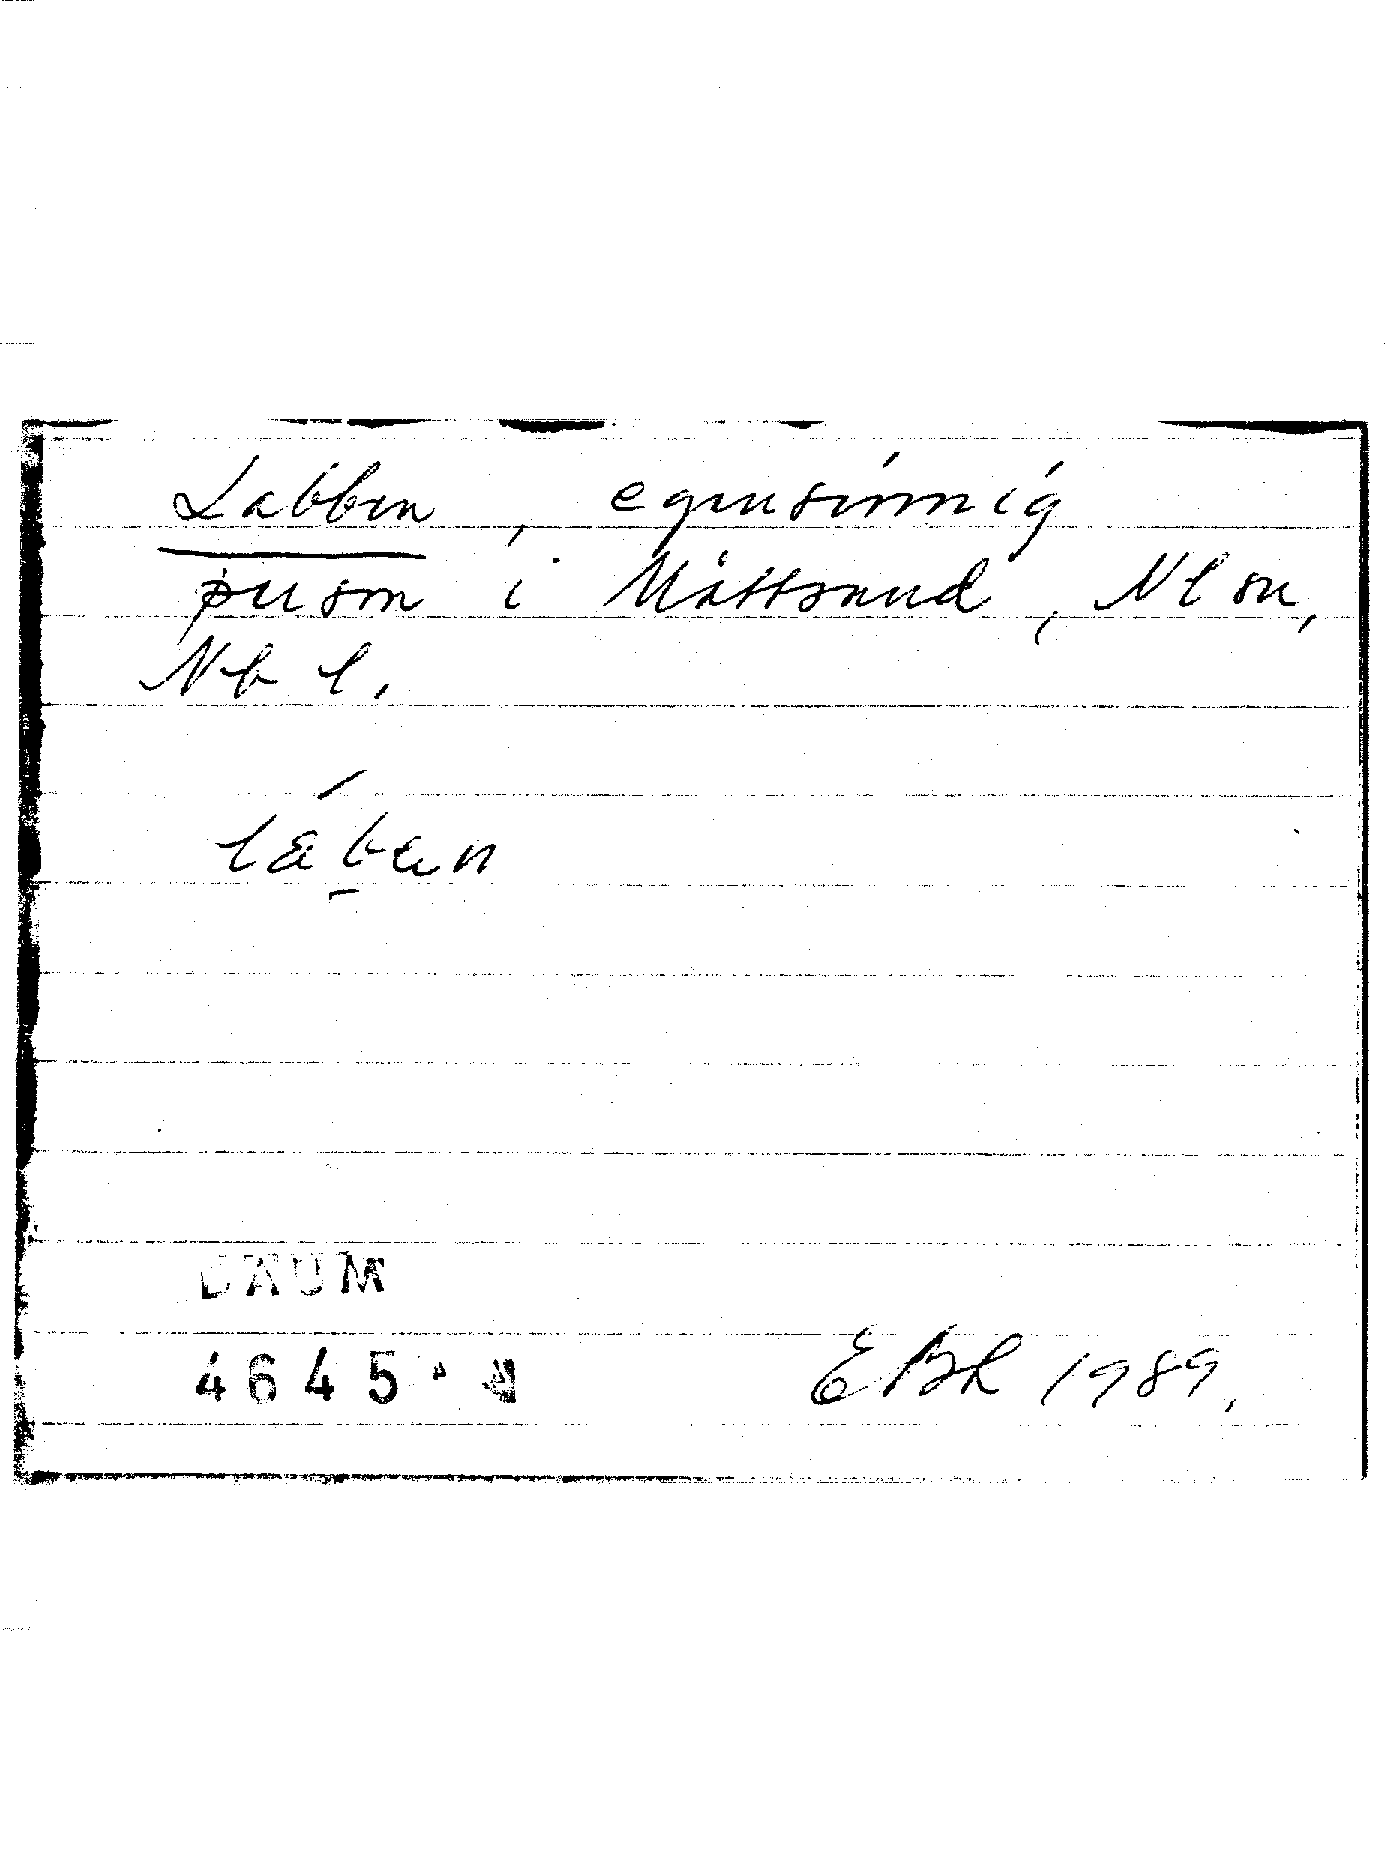 Labben, egensinnig
person i Måttsund, Nl sn,
Nb l.
DAUM
4645
EBL 1989.